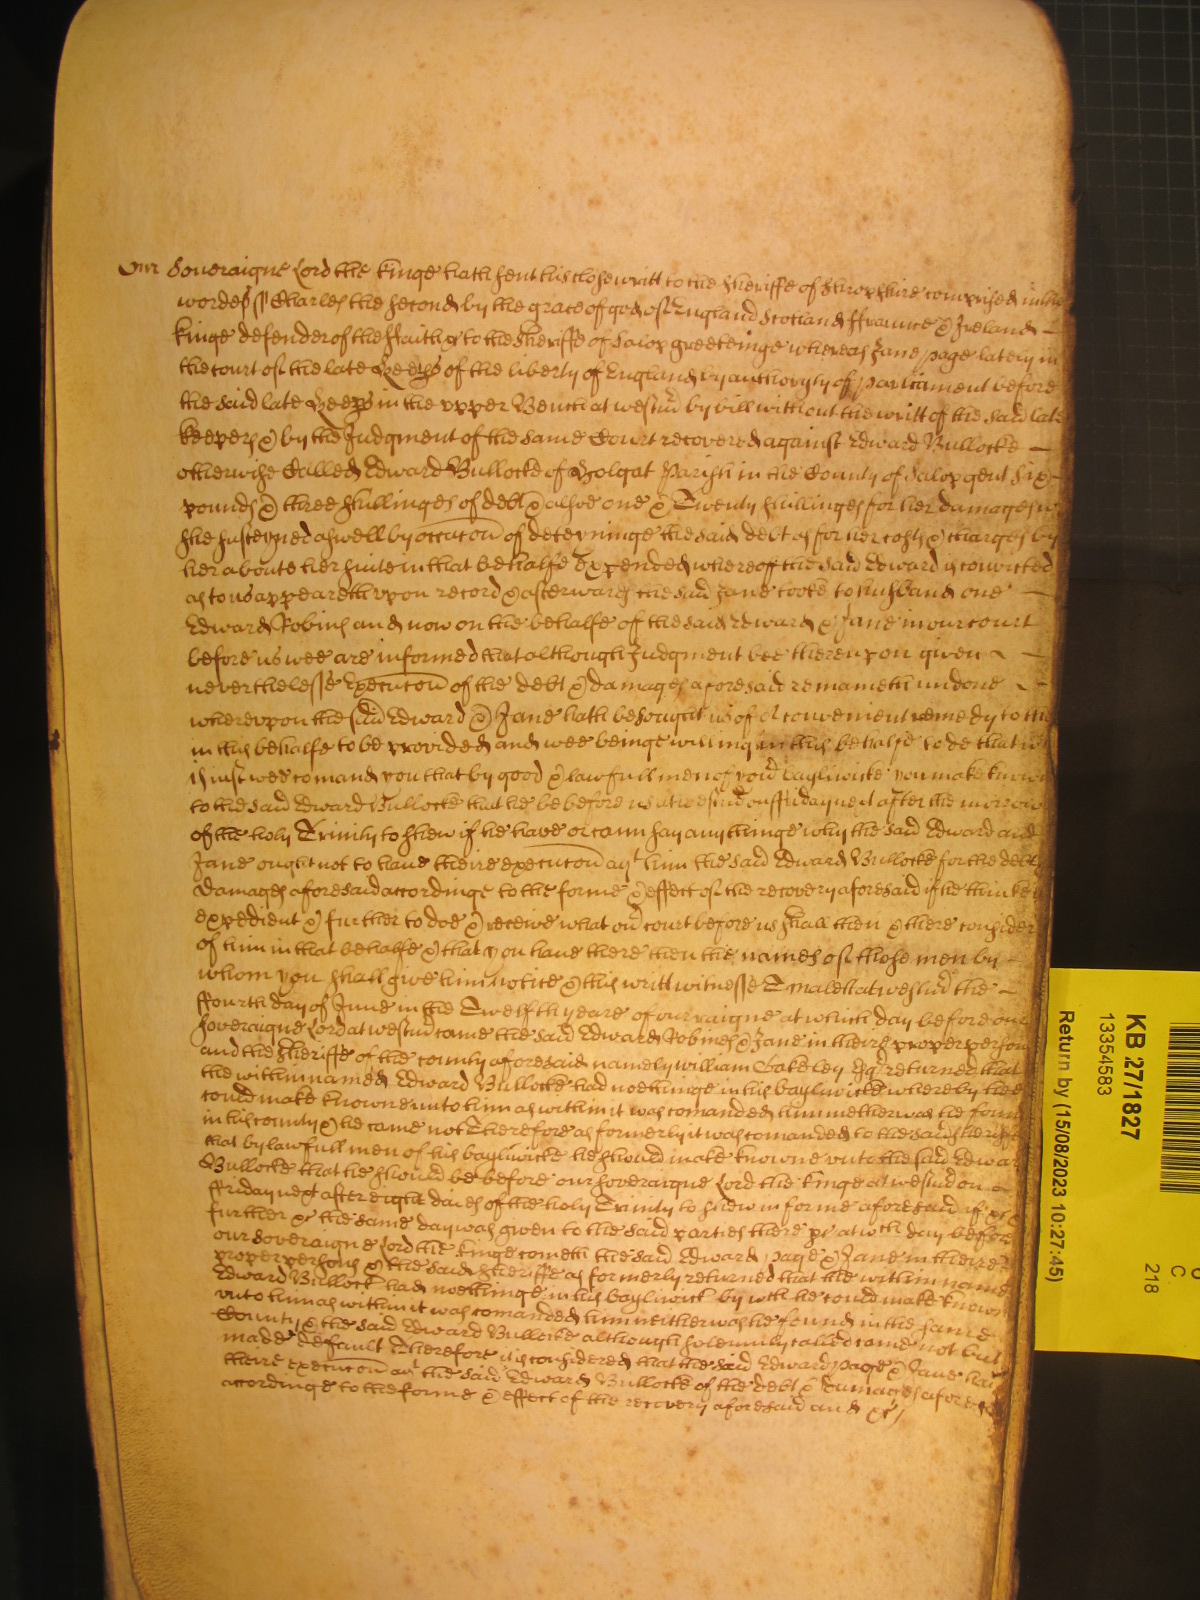 Our Soveraigne Lord the Kinge hath sent his close writt to the Sheriffe of Shropshire comprised in these
wordes ss Charles the second by the grace of god of England Scotland ffraunce & Ireland
Kinge defender of the ffaith &c to the Sheriffe of Salop greeteinge whereas Jane Page lately in
the court of the late Keeps of the liberty of England by authoryty of Parliament before
the said late Keeps in the upper Bench at westmr by bill without the writt of the said late
keepers & by the Judgment of the same Court recovered against Edward Bullocke
otherwise Called Edward Bullocke of Parish in the County of Salop gent six
pounds & three shillinges of debt & alsoe one & Twenty shillinges for her damages
she susteyned aswell by occacon of deteyninge the said debt as for her costs & charges by
her aboute her suite in that behalfe Expended whereof the said Edward is convicted
as to us appeareth upon record & afterwards the said Jane tooke to husband one
Edward Robins and now on the behalfe of the said Edward & Jane in our court
before us wee are informed that although Judgment bee thereupon given
neverthelesse Execucon of the debt & damages aforesaid remaineth undone
whereupon the said Edward & Jane hath besought us of a convenient remedy to them
in this behalfe to be provided and wee beinge willing in this behalfe to do that
is just wee comand you that by good & lawfull men of your bayliwicke you make knowne
to the said Edward Bullocke that he be before us at westmr on ffriday next after the morrow
of the holy Trinity to shew if he have or cann say any thinge why the said Edward and
Jane ought not to have theire execucon agt him the said Edward Bullocke for the debt &
damages aforesaid accordinge to the forme & effect of the recovery aforesaid if he thinke
expedient & further to doe & receive what our court before us shall then & there consider
of him in that behalfe & that you have there then the names of those men by
whom you shall give him notice & this writt witnesse T Malet at westmr the
ffourth day of June in the Twelfth yeare of our raigne at which day before our
soveraigne Lord at westmr came the said Edward Robines & Jane in theire proper persons
and the Sheriffe of the county aforesaid namely William Oakeley Esqr returned that
the within named Edward Bullocke had noethinge in his bayliwicke whereby hee
could make knowne unto him as within it was comanded him neither was he found
in his county & he came not Therefore as formerly it was comanded to the said Sheriffe
that by lawfull men of his bayliwicke he should make knowne unto the said Edward
Bullocke that he should be before our soveraigne Lord the Kinge at westmr on
ffriday next after eight daies of the holy Trinity to shew in forme aforesaid if &c
further &c the same day was given to the said parties there &c at wch day before
our soveraigne Lord the Kinge cometh the said Edward Page & Jane in theire
proper persons & the said Sheriffe as formerly returned that the within named
Edward Bullock had noethinge in his bayliwick by wch he could make knowne
unto him as within it was comanded him neither was he found in the same
County & the said Edward Bullocke although solemnly called came not but
made default Therefore it is considered that the said Edward Page & Jane have
theire execucon agt the said Edward Bullocke of the debt & damages aforesaid
accordinge to the forme & effect of the recovery aforesaid and &c
KB 27/1827
13354583
Return by (15/08/2023 10:27:45)
C
218